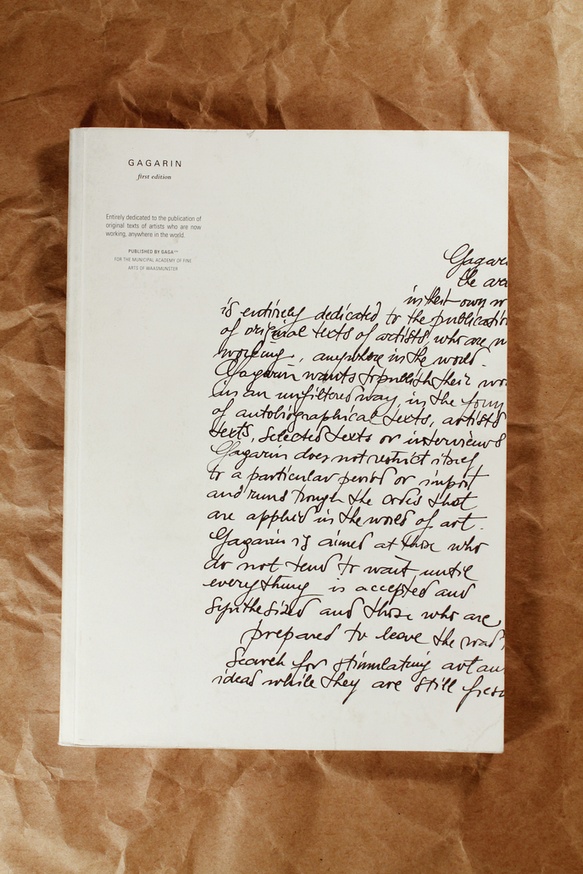 GAGARIN
first edition
Entirely dedicated to the publication of
original texts of artists who are now
working, anywhere in the world.
PUBLISHED BY GAGA
FOR THE MUNICIPAL ACADEMY OF FINE
ARTS OF WAASMUNSTER
Gagar
the
in their own
is entirely dedicated to the publicati
of original texts of artists, who are n
working, anywhere in the world.
Gagarin wants to publish their wo
in an unfiltered way, in the form
of autobiographical texts, artists
texts, selected texts or interviews
Gagarin does not restrict itself
to a particular period or import
and runs trough the codes that
are applied in the world of art.
Gagarin is aimed at those who
do not tend to wait until
everything is accepted and
synthesized and those who are
prepared to leave the road
search for stimulating art an
ideas while they are still fres